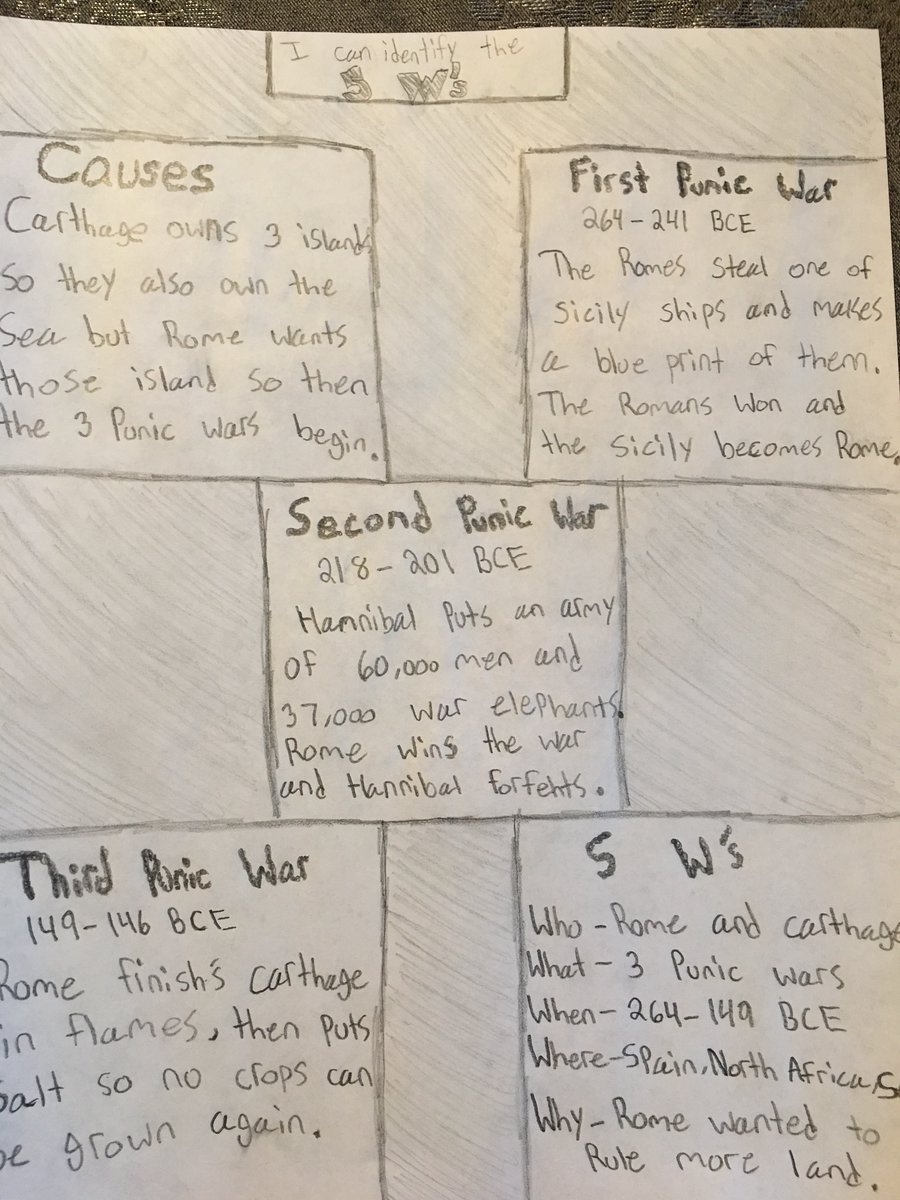 I can identify the
5 W's
Causes
Carthage owns 3 islands
So they also own the
Sea but Rome wants
those island so then
the 3 Punic wars begin.
First Punic War
264-241 BCE
The Romes steal one of
Sicily ships and makes
a blue print of them.
The Romans won and
the Sicily becomes Rome.
Second Punic War
218-201 BCE
Hannibal Puts an army
of 60,000 men and
37,000 war elephants.
Rome wins the war
and Hannibal forfehts.
Third Punic War
149-146 BCE
Rome finish's carthage
in flames, then puts
salt so no crops can
be grown again.
5 W's
Who - Rome and carthage
What - 3 Punic wars
When - 264-149 BCE
Where - Spain, North Africa,
Why - Rome wanted to
Rule more land.